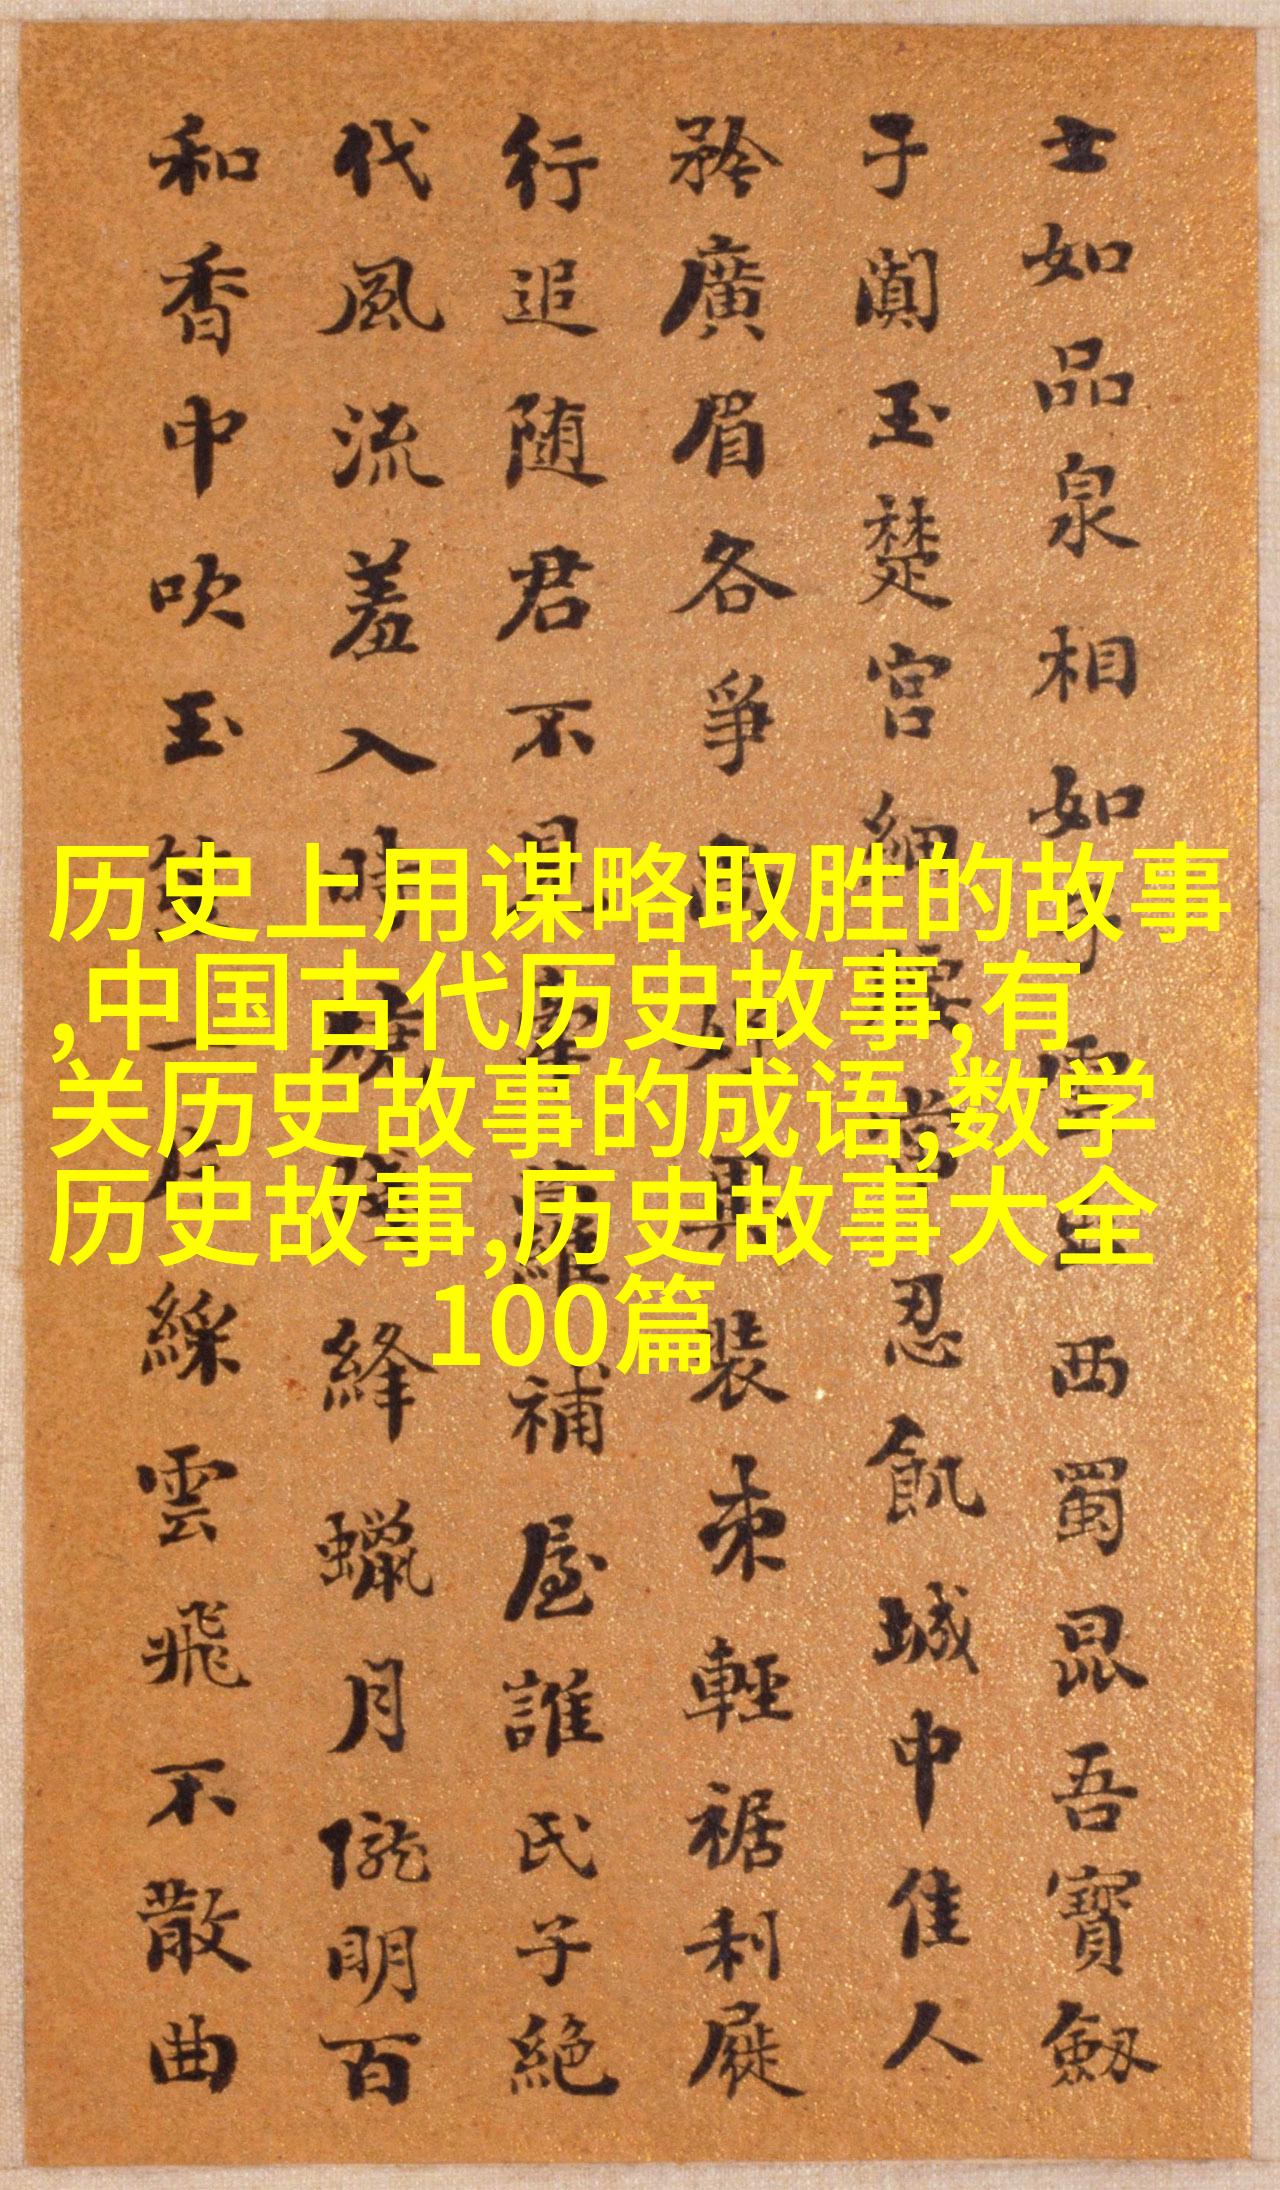 士如品泉相如子雲西蜀昆吾寶劔
于闐玉楚宮細腰當忍飢城中佳人
矜廣眉各爭好異裝束輕裾利屣
行追随君不見牽蘿補屋誰氏子絕
代風流羞入時燒殘絳蠟月朧明百
和香中吹玉笛一片綵雲飛不散曲
历史上用谋略取胜的故事
,中国古代历史故事,有
关历史故事的成语,数学
历史故事,历史故事大全
100篇